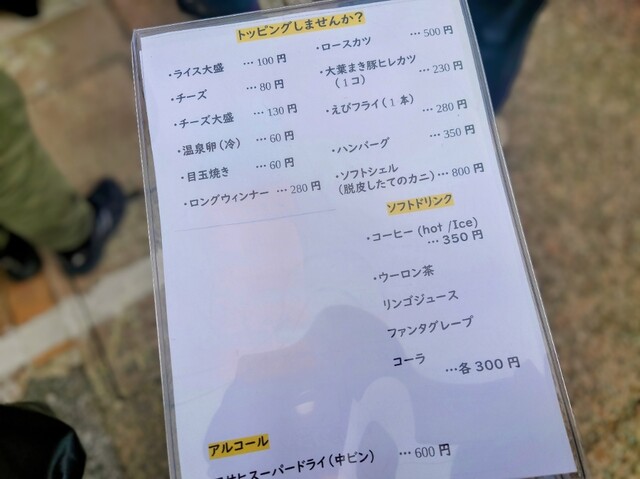 トッピングしませんか？
・ライス大盛 … 100 円
・チーズ … 80 円
・チーズ大盛 … 130 円
・温泉卵（冷） … 60 円
・目玉焼き … 60 円
・ロングウィンナー … 280 円
・ロースカツ … 500 円
・大葉まき豚ヒレカツ
（1コ） … 230 円
・えびフライ（1 本） … 280 円
・ハンバーグ … 350 円
・ソフトシェル
（脱皮したてのカニ） … 800 円
ソフトドリンク
・コーヒー (hot /Ice)
… 350 円
・ウーロン茶
リンゴジュース
ファンタグレープ
コーラ
…各 300 円
アルコール
スーパードライ（中ビン） … 600 円